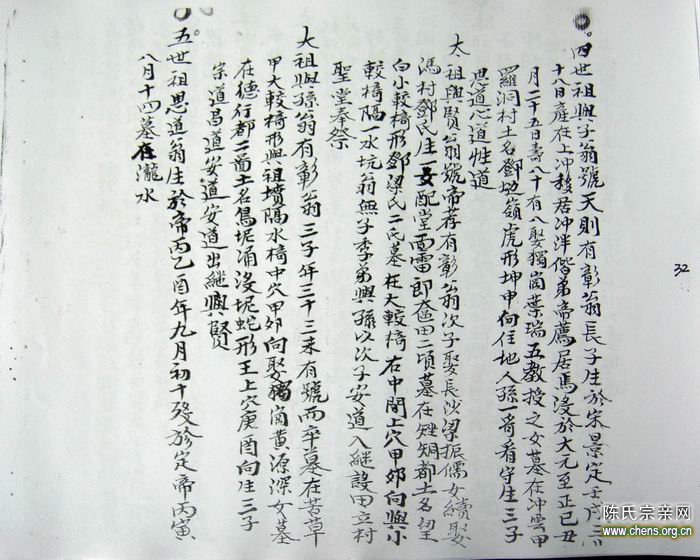 四世祖興子翁號天則有彰公長子生於宋景定壬戌三月
十八日產在上冲後居冲泮偕弟帝薦居馬沒於大元至正己丑
月二十五日壽八十有八娶獨崗葉瑞五教授之女墓在冲雲甲
羅洞村土名鄧边嶺虎形坤申向住地人孫一哥看守生三子
思道心道性道
太祖興賢公號帝荐有彰公翁次子娶長沙梁振儒女續娶
馮村鄧氏生一女配堂面雷即奩田二頃墓在蛙蜘都土名望
白小較椅形鄧梁氏二氏墓在大較椅右中間上穴甲卯向與小
較椅隔一水坑翁無子季弟興孫以次子安道入継設田立村
聖堂奉祭
大祖興孫翁有彰公三子年三十三未有號而卒墓在苦草
甲大較椅形與祖墳隔水椅中穴甲卯向娶獨崗黄源深女墓
在德行都二啚土名坭涌沒坭蛇形王上穴庚酉向生三子
宗道昌道安道安道出継興賢
五世祖思道翁生於帝丙乙酉年九月初十發於定帝丙寅
八月十四墓在瀧水
32
陈氏宗亲网
www.chens.org.cn